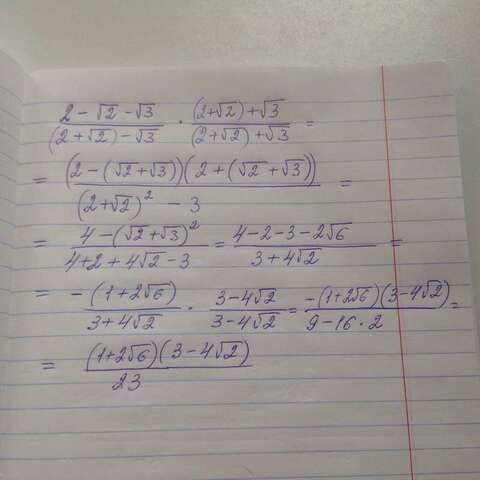 (2 - √2 - √3)/((2 + √2) - √3) · ((2+√2) + √3)/((2+√2) + √3) =
= ((2 - (√2 + √3))(2 + (√2 + √3)))/((2+√2)² - 3) =
= (4 - (√2 + √3)²)/(4 + 2 + 4√2 - 3) = (4 - 2 - 3 - 2√6)/(3 + 4√2) =
= (-(1 + 2√6))/(3 + 4√2) · (3 - 4√2)/(3 - 4√2) = (-(1+2√6)(3 - 4√2))/(9 - 16 · 2) =
= ((1+2√6)(3 - 4√2))/23